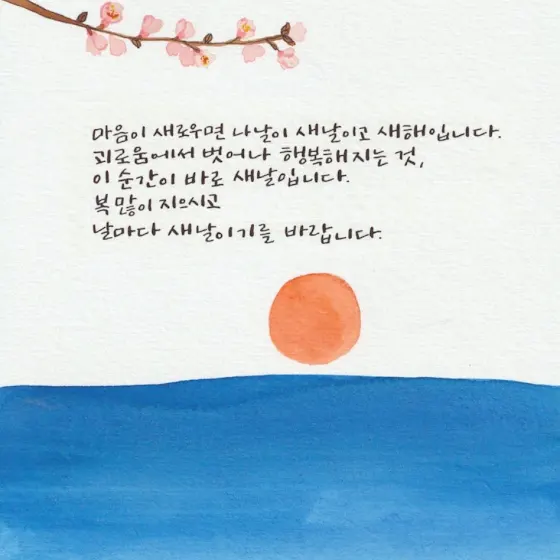 마음이 새로우면 나날이 새날이고 새해입니다.
괴로움에서 벗어나 행복해지는 것,
이 순간이 바로 새날입니다.
복 많이 지으시고
날마다 새날이기를 바랍니다.